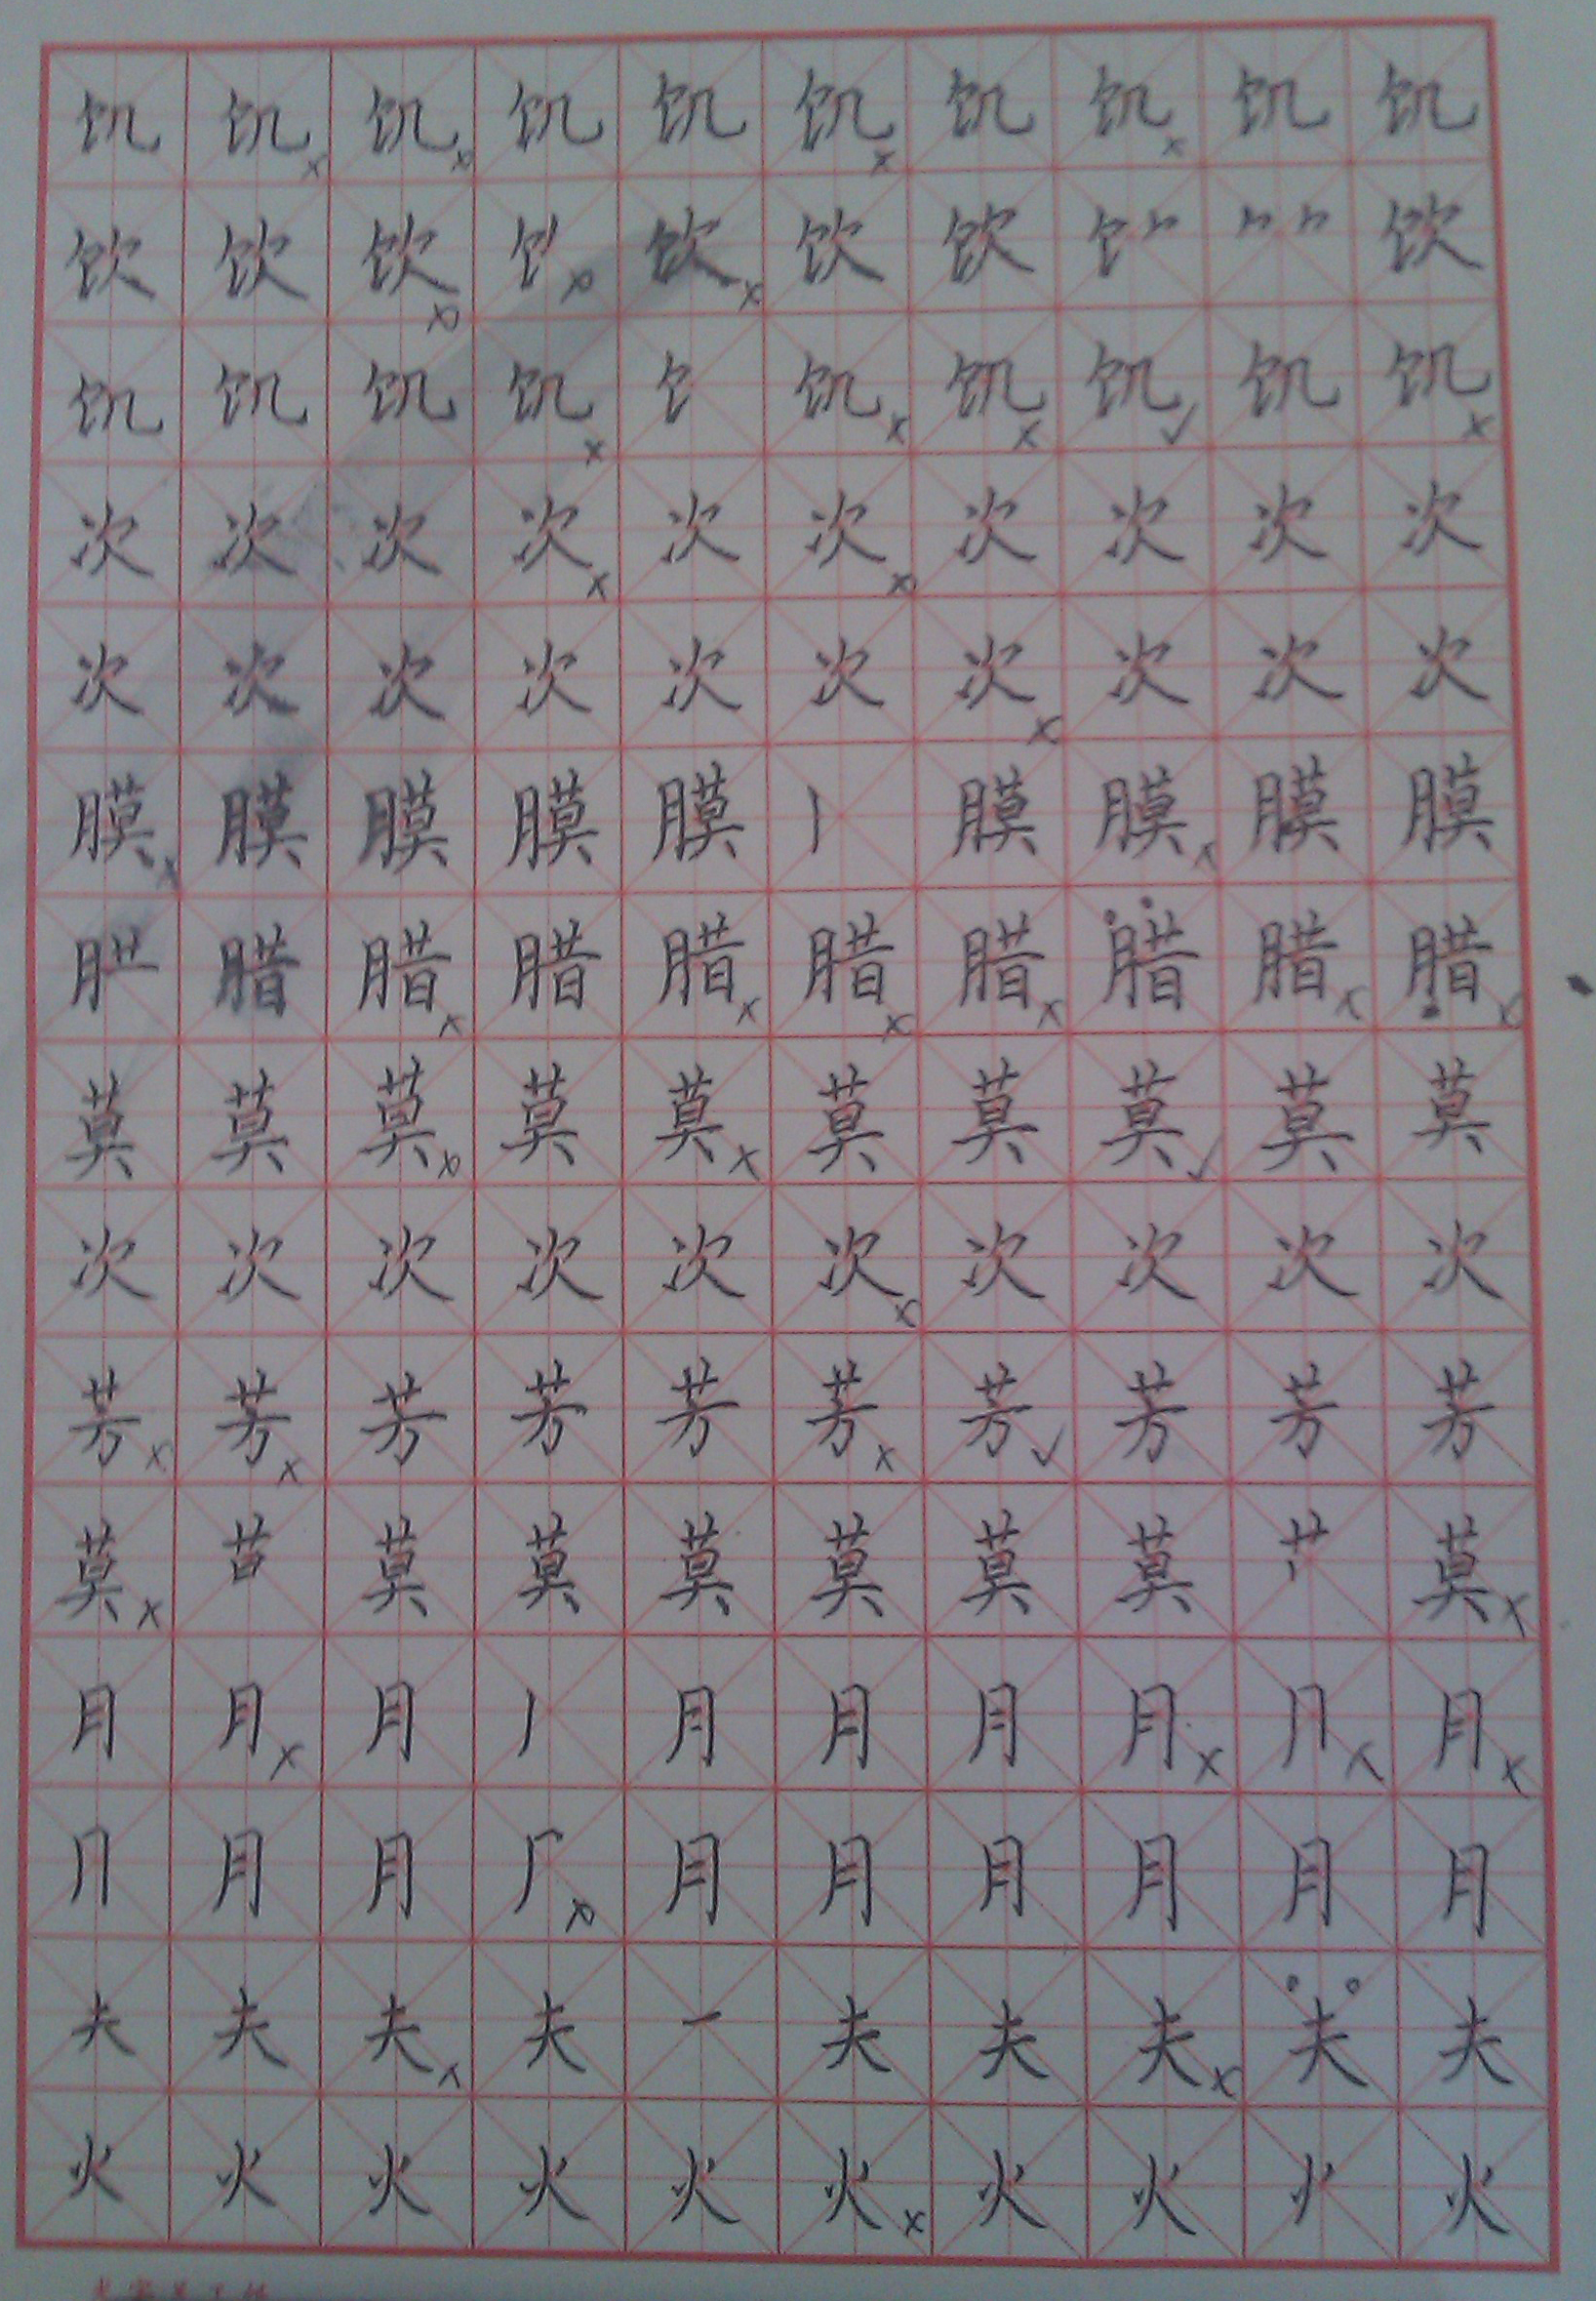 饥饥饥饥饥饥饥饥饥饥
饮饮饮饣饮饮饮饣饮
饥饥饥饥饣饥饥饥饥饥
次次次次次次次次次次
次次次次次次次次次次
膜膜膜膜膜丨膜膜膜膜
月腊腊腊腊腊腊腊腊腊
莫莫莫莫莫莫莫莫莫莫
次次次次次次次次次次
芳芳芳芳芳芳芳芳芳芳
莫苩莫莫莫莫莫莫艹莫
月月月丿月月月月冂月
冂月月厂月月月月月月
夫夫夫夫一夫夫夫夫夫
火火火火火火火火火